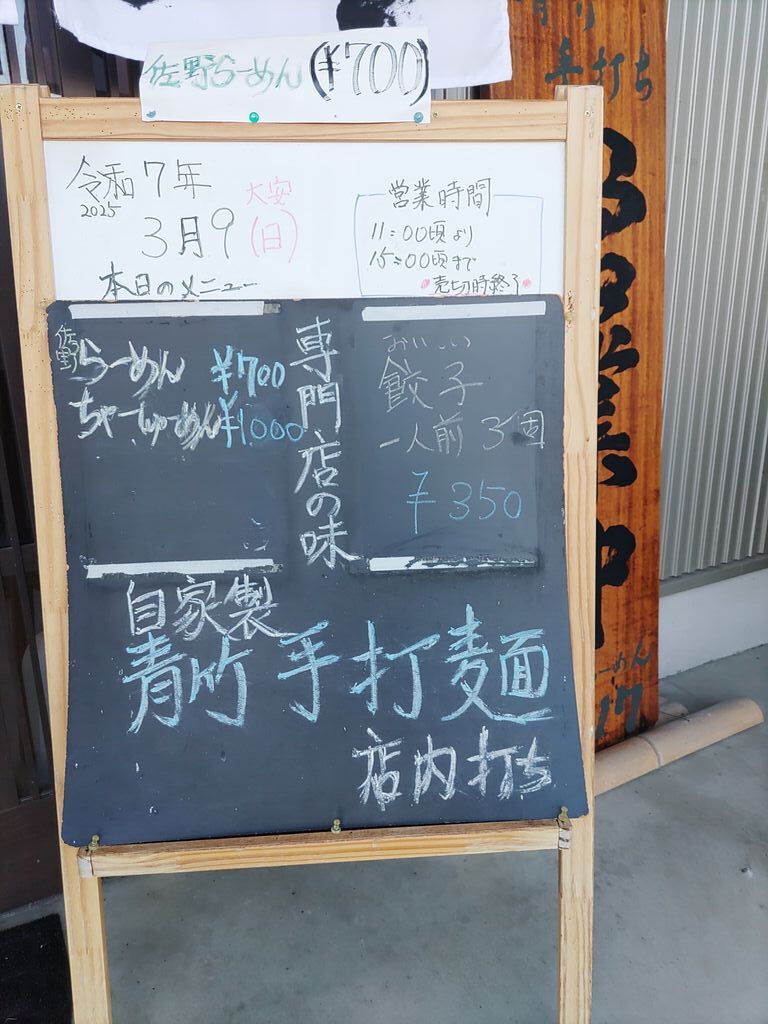 佐野らーめん(¥700)
令和7年
2025
3月9(日)
大安
本日のメニュー
営業時間
11:00頃より
15:00頃まで
売切時終了
佐野らーめん ¥700
ちゃーしゅーめん ¥1000
専門店の味
おいしい
餃子
一人前 3個
¥350
自家製
青竹手打麺
店内打ち
手打ち
営業中